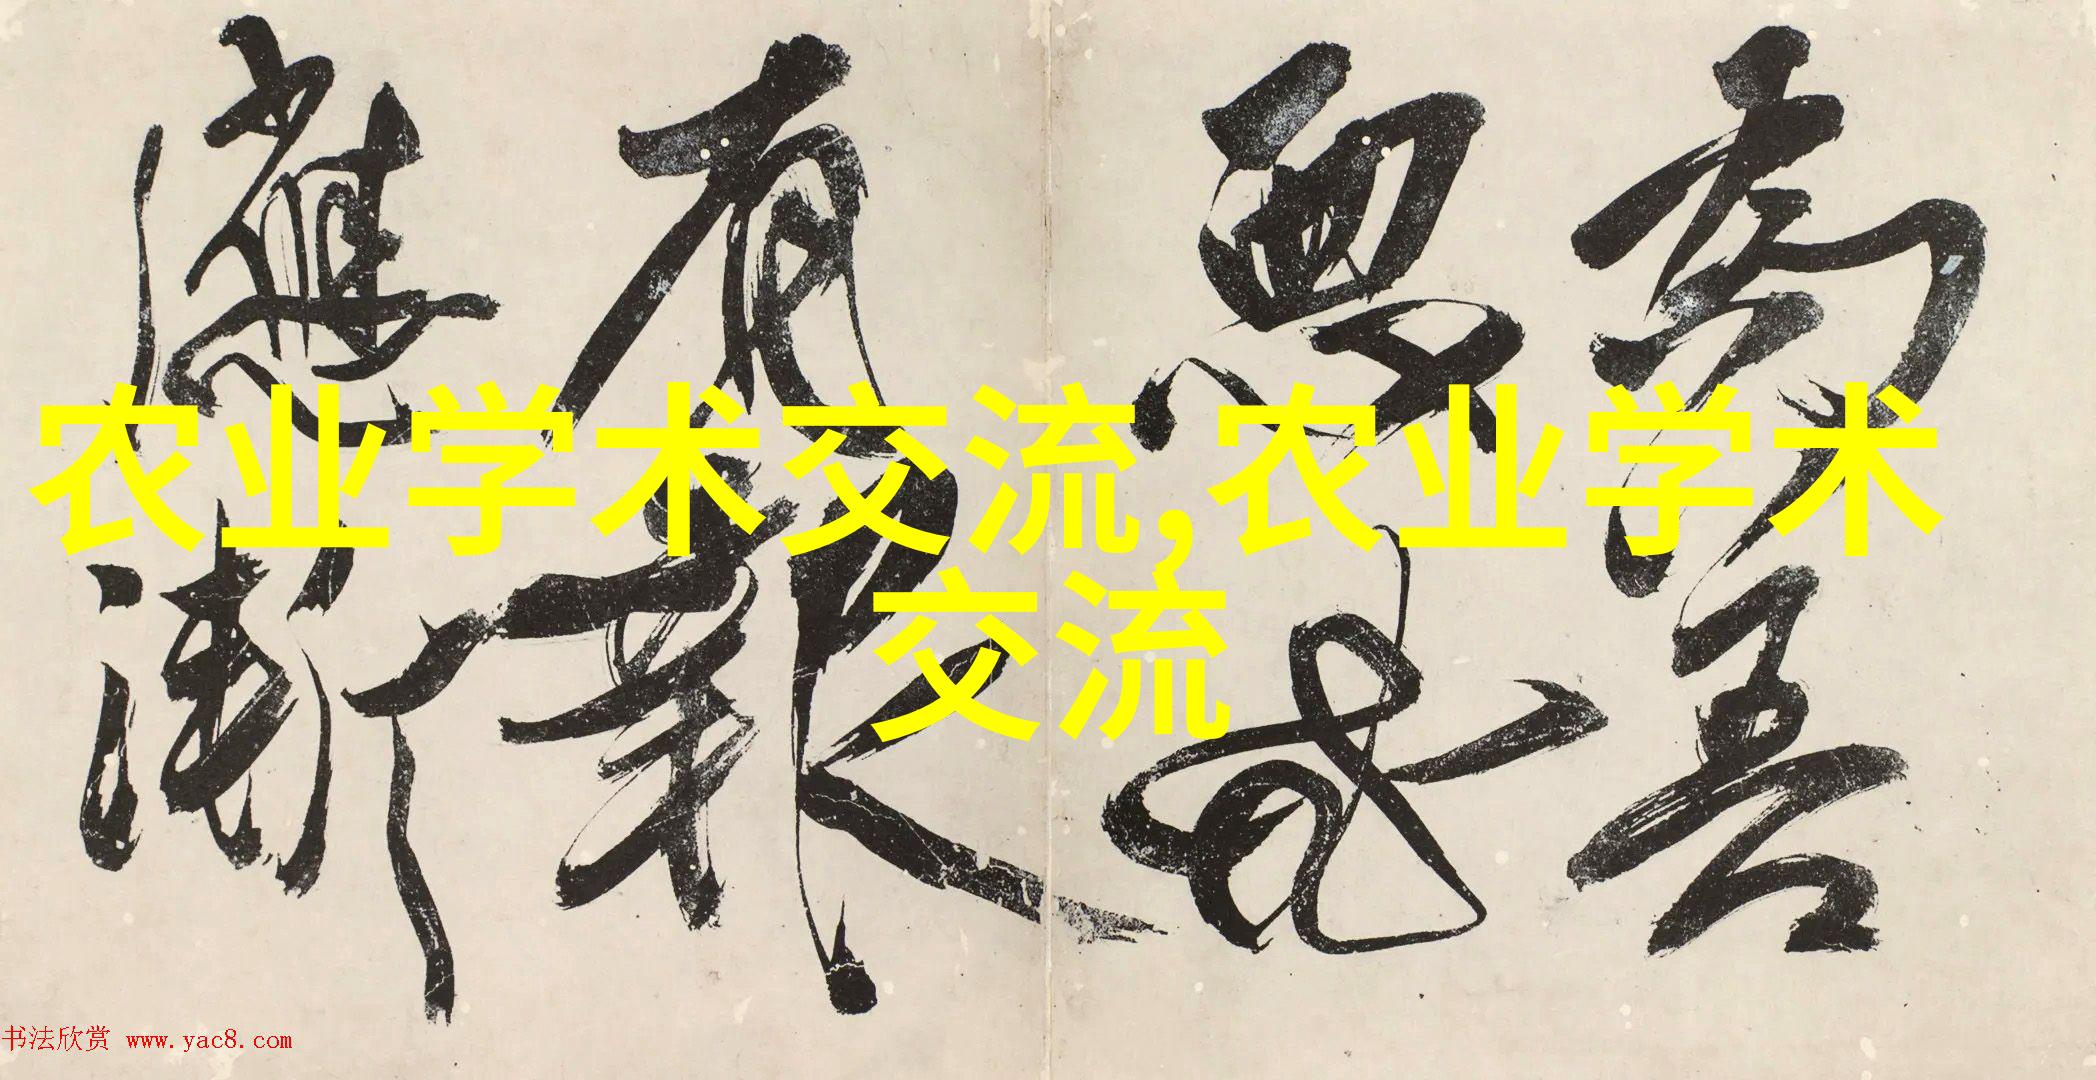 农业学术交流,农业学术
交流
善
惡
有報
應漸
书法欣赏 www.yac8.com